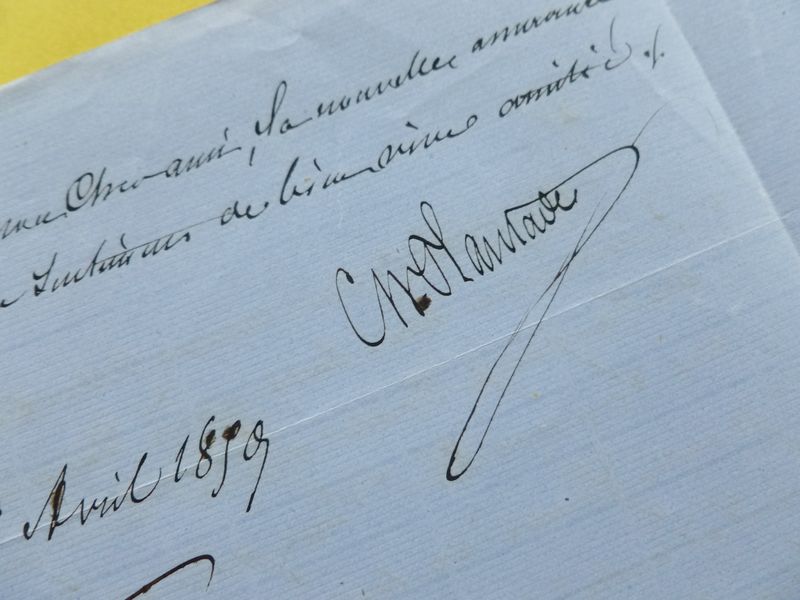 mon Cher ami, la nouvelle assurance
Sentiments de bien vive amitié ./.
Ch. Plantade
Avril 1859